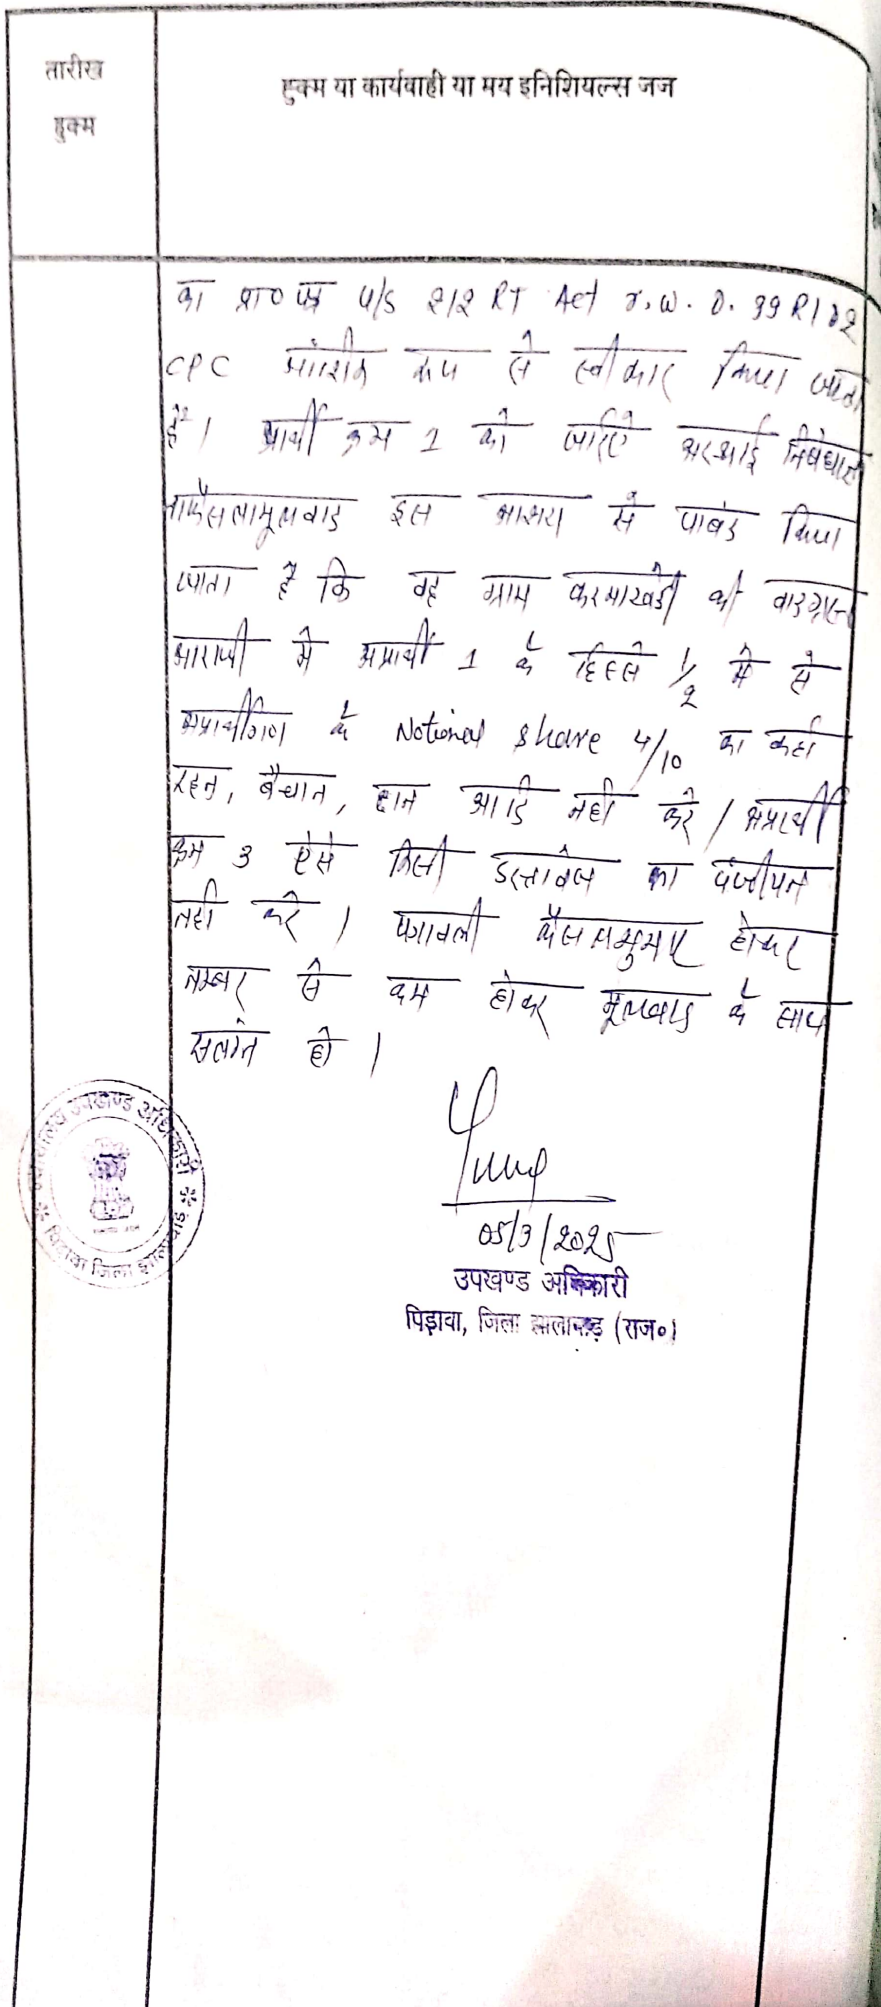 तारीख
हुक्म
हुक्म या कार्यवाही या मय इनिशियल्स जज
का प्रा० पत्र U/S 212 RT Act r.w. O. 39 R 1 व 2
CPC आंशिक रूप से स्वीकार किया जाता
है। प्रार्थी क्रम 1 को जरिए अस्थाई निषेधाज्ञा
ताफैसलामूलवाद इस आशय से पाबंद किया
जाता है कि वह ग्राम करमाखेडी की वादग्रस्त
आराजी में अप्रार्थी 1 के हिस्से 1/2 में से
अप्रार्थीगण के Notional share 4/10 का कहीं
रहन, बैचान, दान आदि नही करे। अप्रार्थी
क्रम 3 ऐसे किसी दस्तावेज का पंजीयन
नही करे। पत्रावली फैसलशुमार होकर
नम्बर से कम होकर मूलवाद के साथ
सलंग्न हो।
05/3/2025
उपखण्ड अधिकारी
पिड़ावा, जिला झालावाड़ (राज०)
उपखण्ड अधिकारी
पिड़ावा जिला झालावाड़